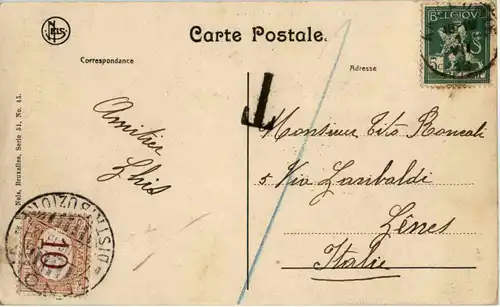 NELS
Carte Postale.
Correspondance
Adresse
BELGIQUE
5
T
Amitiés
Ghis
Monsieur Tito Roncali
5 Via Garibaldi
Gênes
Italie
Nels, Bruxelles, Serie 51, No. 45.
10
DISTRIBUZIONE